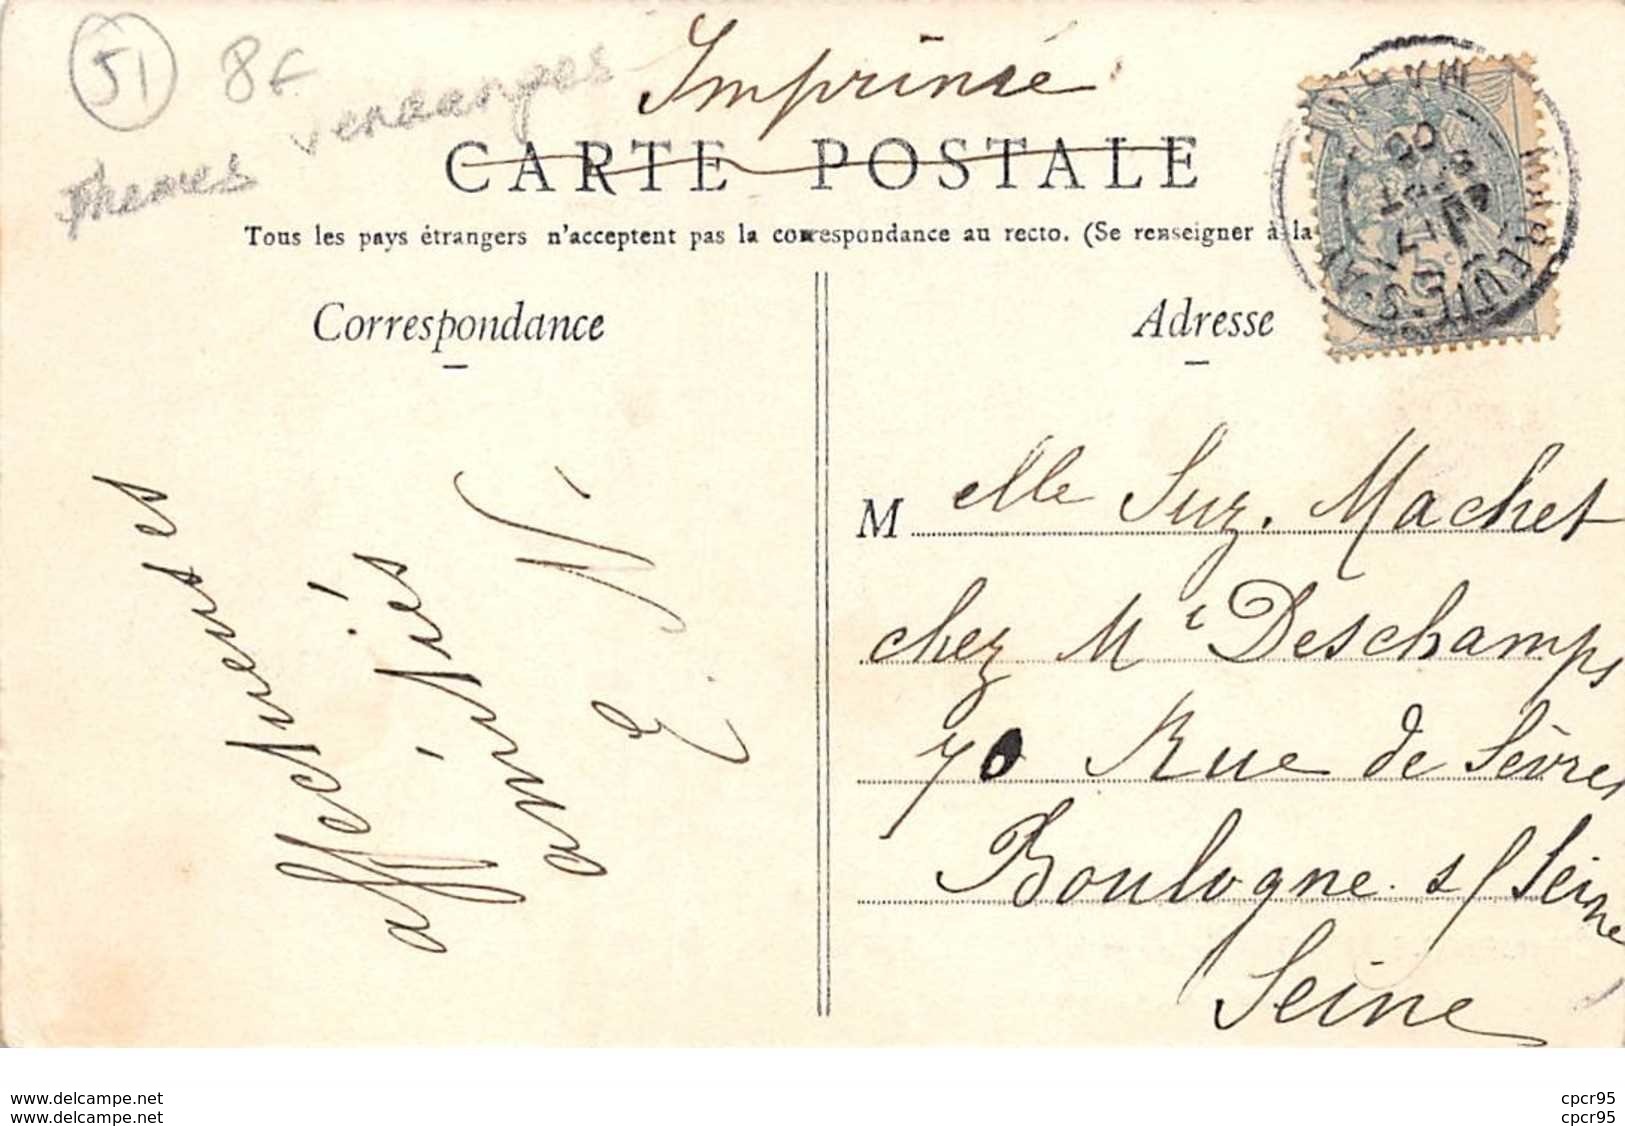 51 8F
Themes vendanges
Imprimé
CARTE POSTALE
Tous les pays étrangers n'acceptent pas la correspondance au recto. (Se renseigner à la
Correspondance
affectueuses
amitiés
E. N.
Adresse
MAREUIL-S-AY
MARNE
Melle Suz. Machet
chez Mr Deschamps
70 Rue de Sèvres
Boulogne s/ Seine
Seine
www.delcampe.net
www.delcampe.net
cpcr95
cpcr95